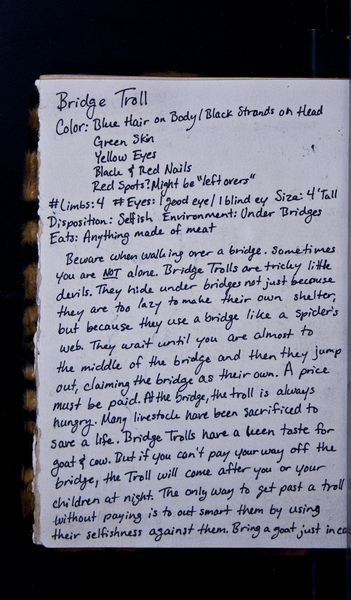 Bridge Troll
Color: Blue Hair on Body/Black Strands on Head
Green Skin
Yellow Eyes
Black & Red Nails
Red Spots? Might be "leftovers"
# Limbs: 4 # Eyes: 1 good eye/1 blind ey Size: 4' Tall
Disposition: Selfish Environment: Under Bridges
Eats: Anything made of meat
Beware when walking over a bridge. Sometimes
you are NOT alone. Bridge Trolls are tricky little
devils. They hide under bridges not just because
they are too lazy to make their own shelter,
but because they use a bridge like a spider's
web. They wait until you are almost to
the middle of the bridge and then they jump
out, claiming the bridge as their own. A price
must be paid. At the bridge, the troll is always
hungry. Many livestock have been sacrificed to
save a life. Bridge Trolls have a keen taste for
goat & cow. But if you can't pay your way off the
bridge, the Troll will come after you or your
children at night. The only way to get past a troll
without paying is to out smart them by using
their selfishness against them. Bring a goat just in ca